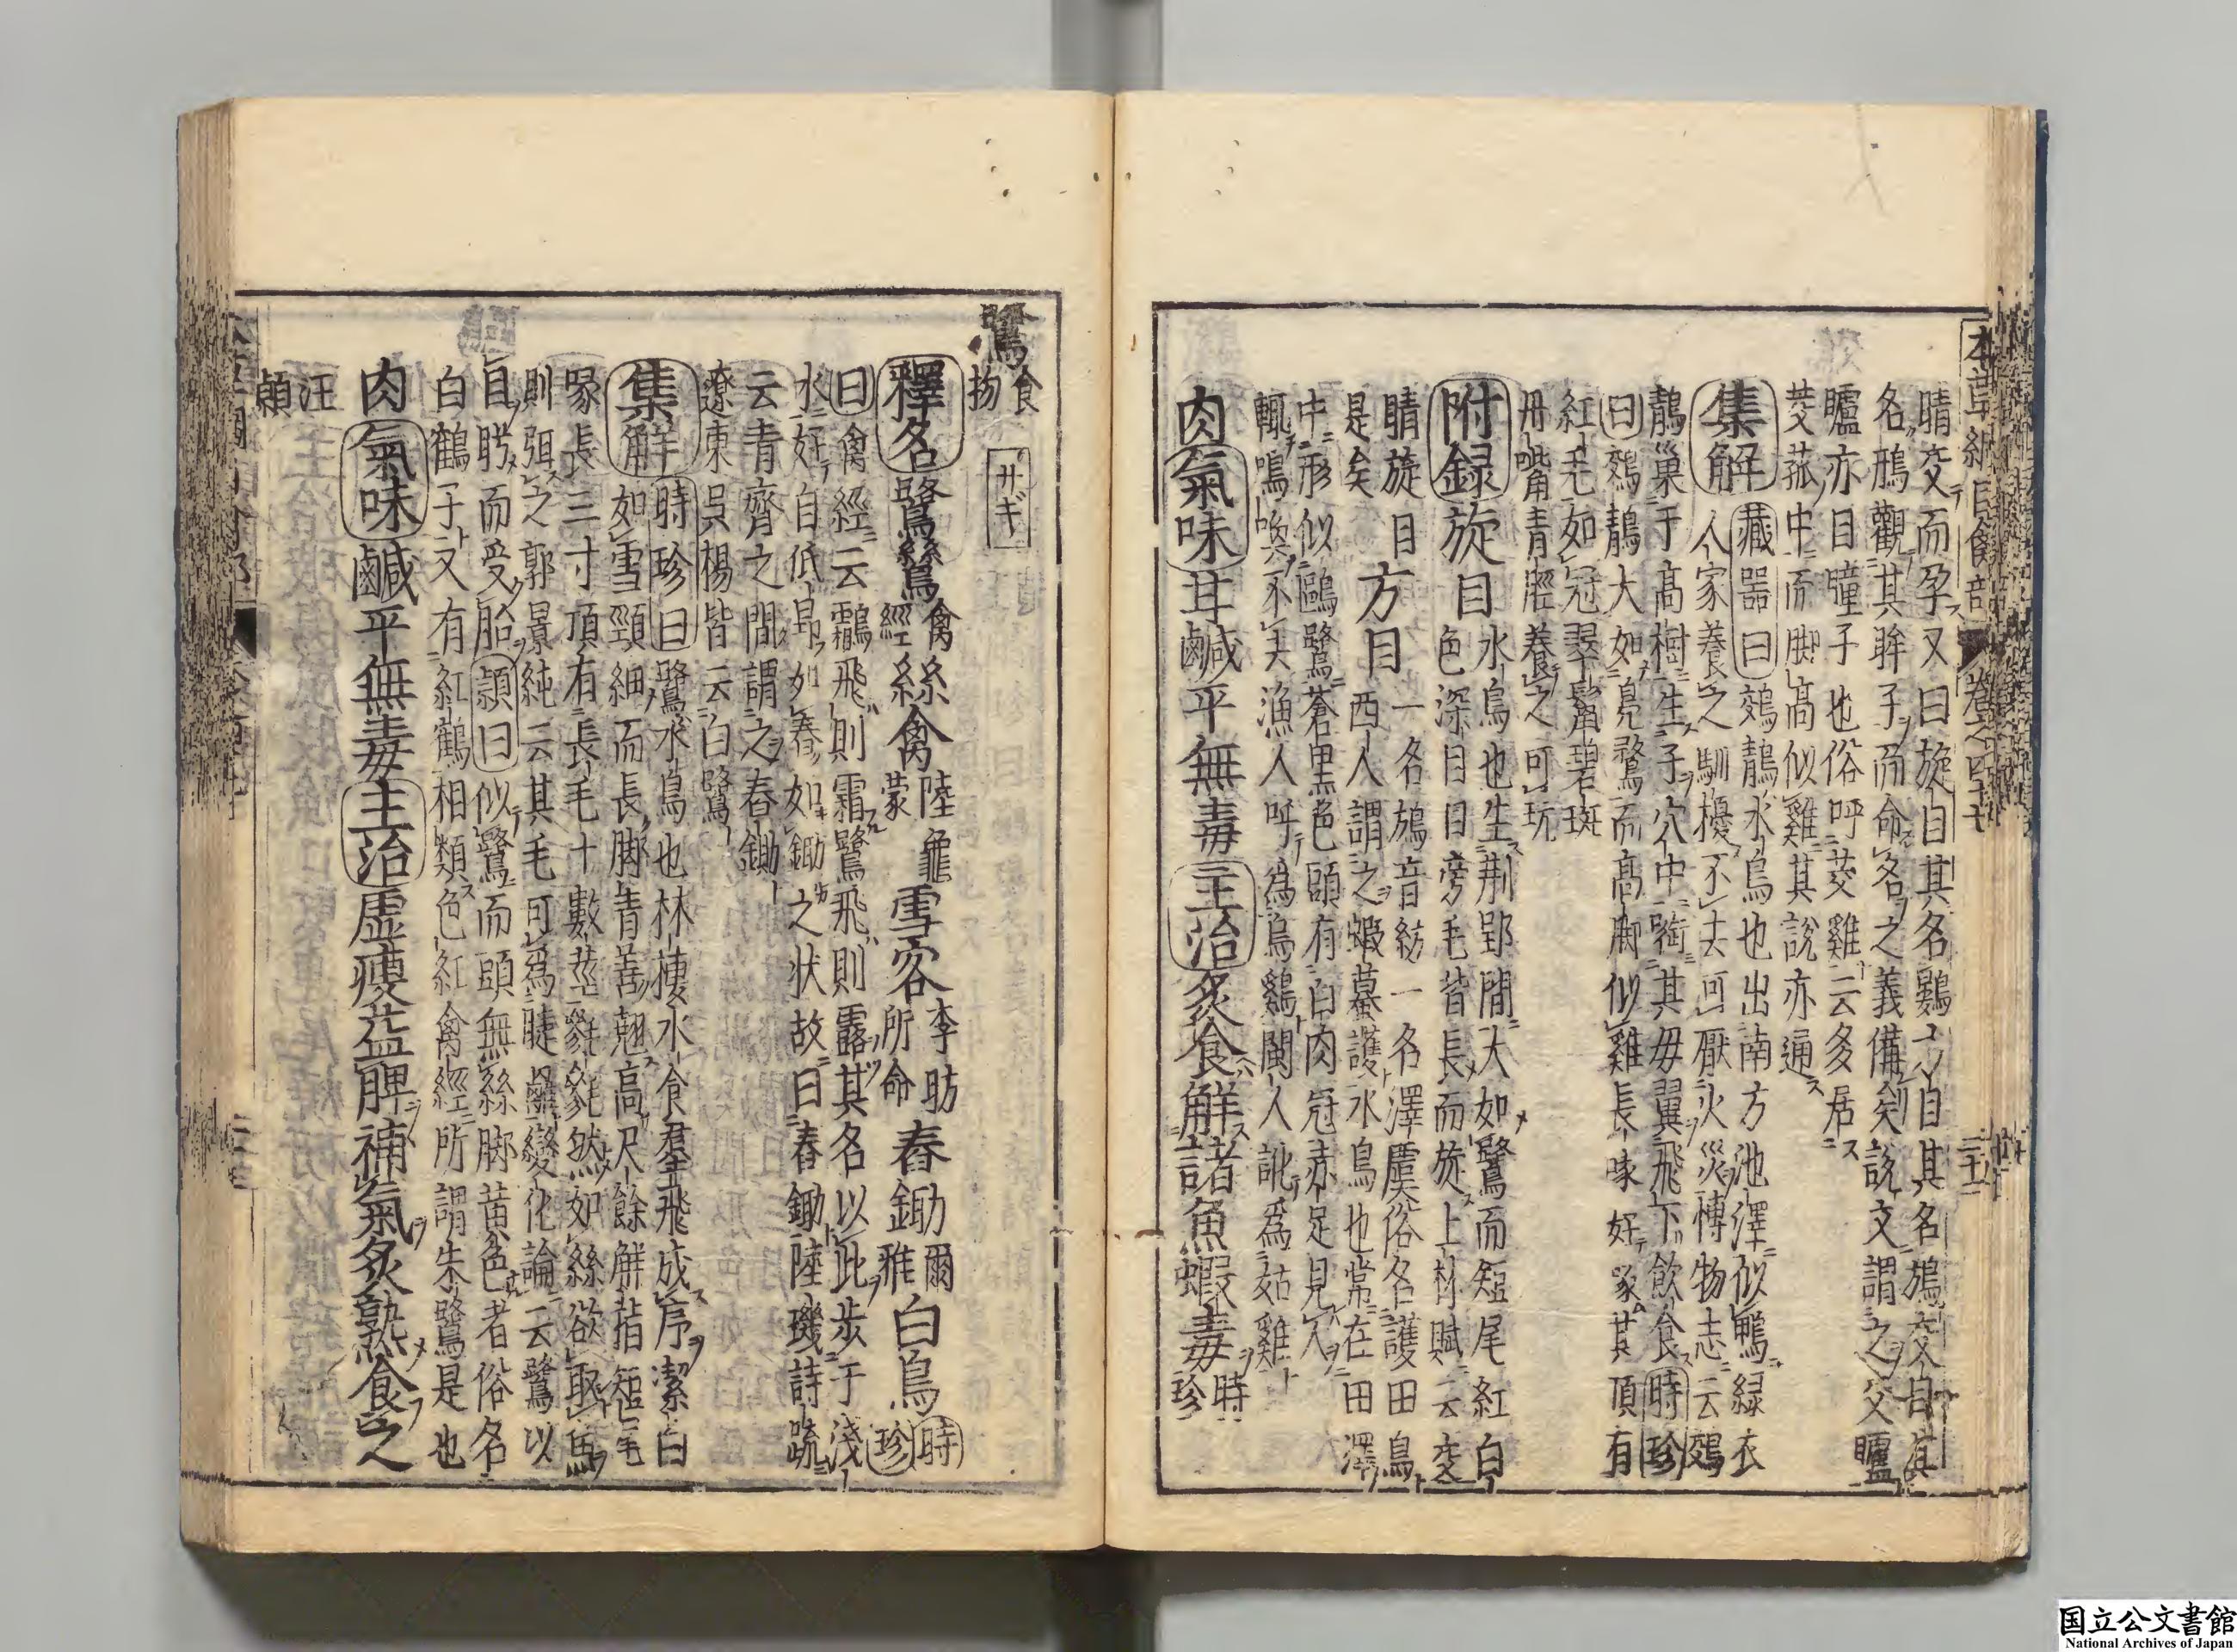 本草綱目禽部 卷之四十七
睛交而孕又曰旋目其名鷄方目其名鳽交目其
名鳽觀其眸子而命名之義備矣說文謂之交矑
矑亦目瞳子也俗呼茭雞云多居
茭菰中而脚高似雞其說亦通
集解 藏器曰鵁鶄水鳥也出南方池澤似鴨綠衣
人家養之馴擾不去可厭火災博物志云鵁
鶄巢于高樹生子穴中銜其母翼飛下飲食時珍
曰鵁鶄大如鳧鶩而高脚似雞長喙好啄其頂有
紅毛如冠翠鬣碧斑
丹嘴青脛養之可玩
附録旋目 水鳥也生荆郢間大如鷺而短尾紅白
色深目目旁毛皆長而旋上林賦云交
睛旋目 方目 一名鴋音紡一名澤虞俗名護田鳥
是矣 西人謂之蝦蟇護水鳥也常在田澤
中形似鷗鷺蒼黑色頭有白肉冠赤足見人
輒鳴喚不去漁人呼爲烏鷄閩人訛爲姑雞
肉氣味甘鹹平無毒主治炙食解諸魚蝦毒時珍
鷺 食物 サギ
釋名鷺鷥禽經絲禽陸龜蒙雪客李昉所命舂鋤爾雅白鳥時珍
曰禽經云鸘飛則霜鷺飛則露其名以此步于淺
水好自低昂如舂如鋤之状故曰舂鋤陸璣詩疏
云青齊之間謂之舂鋤
遼東吳楊皆云白鷺
集解 時珍曰鷺水鳥也林棲水食羣飛成序潔白
如雪頸細而長脚青善翹高尺餘解指短尾
喙長三寸頂有長毛十數莖毿毿然如絲欲取魚
則弭之郭景純云其毛可爲睫䍦變化論云鷺以
目盻而受胎頴曰似鷺而頭無絲脚黄色者俗名
白鶴子又有紅鶴相類色紅禽經所謂朱鷺是也
肉氣味鹹平無毒主治虛瘦益脾補氣炙熟食之
汪頴
国立公文書館
National Archives of Japan